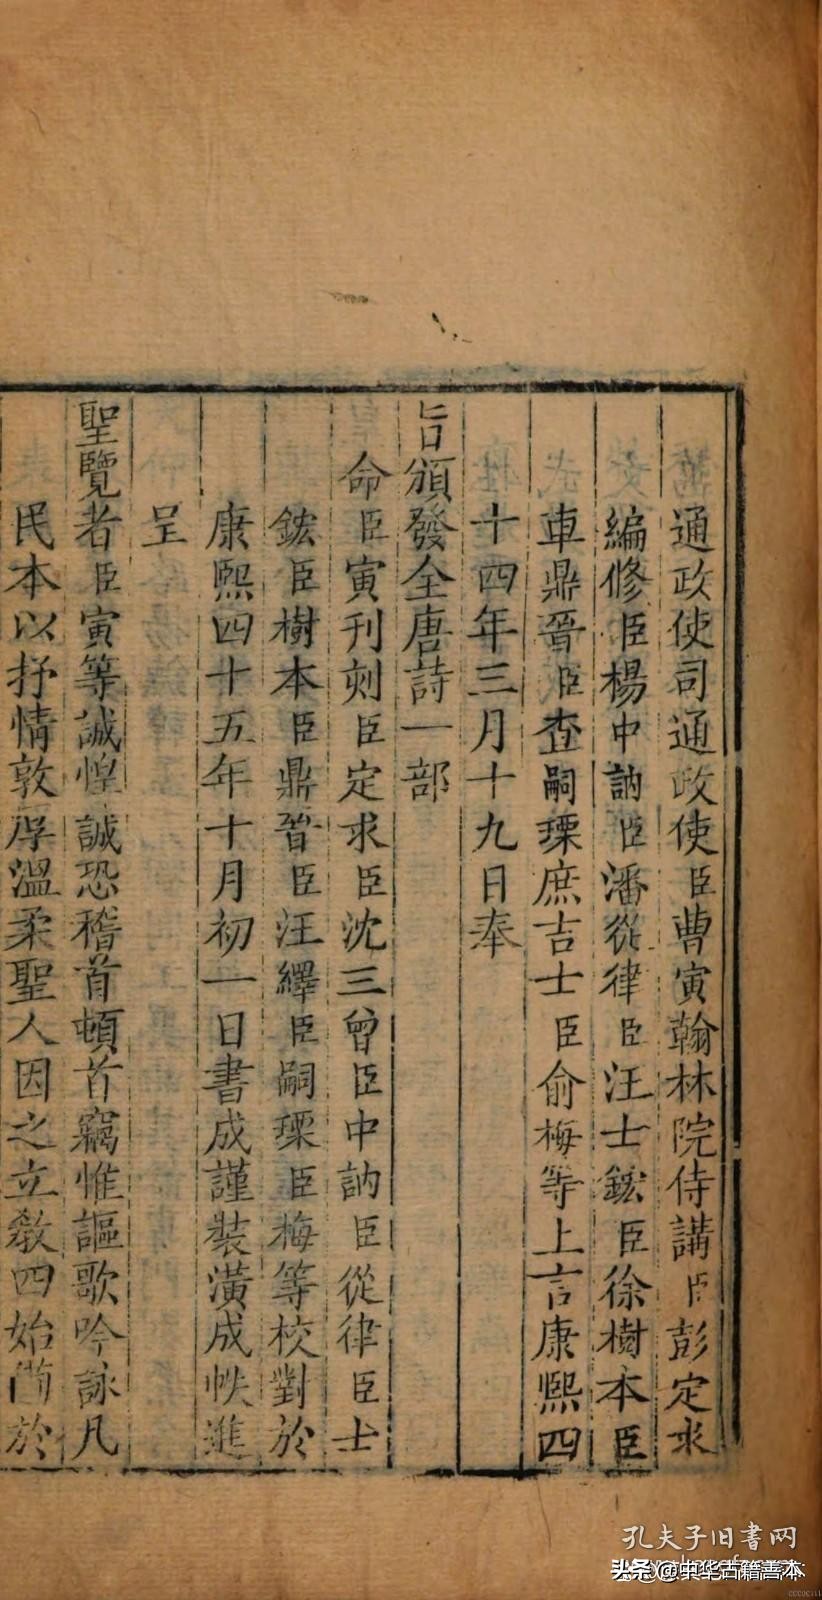 通政使司通政使臣曹寅翰林院侍講臣彭定求
編修臣楊中訥臣潘從律臣汪士鋐臣徐樹本臣
車鼎晉臣查嗣瑮庶吉士臣俞梅等上言康熙四
十四年三月十九日奉
旨頒發全唐詩一部
命臣寅刊刻臣定求臣沈三曾臣中訥臣從律臣士
鋐臣樹本臣鼎晉臣汪繹臣嗣瑮臣梅等校對於
康熙四十五年十月初一日書成謹裝潢成帙進
呈
聖覽者臣寅等誠惶誠恐稽首頓首竊惟謳歌吟詠凡
民本以抒情敦厚溫柔聖人因之立教四始備於
孔夫子旧书网
头条 @中华古籍善本